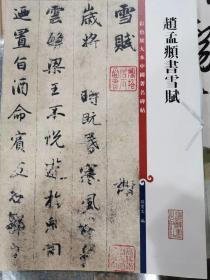 趙孟頫書雪賦
彩色放大本中國著名碑帖
孫寶文 編
雪賦
歲將 時既昏寒風
雲繁梁王不悅遊於兔園
迺置旨酒命賓友